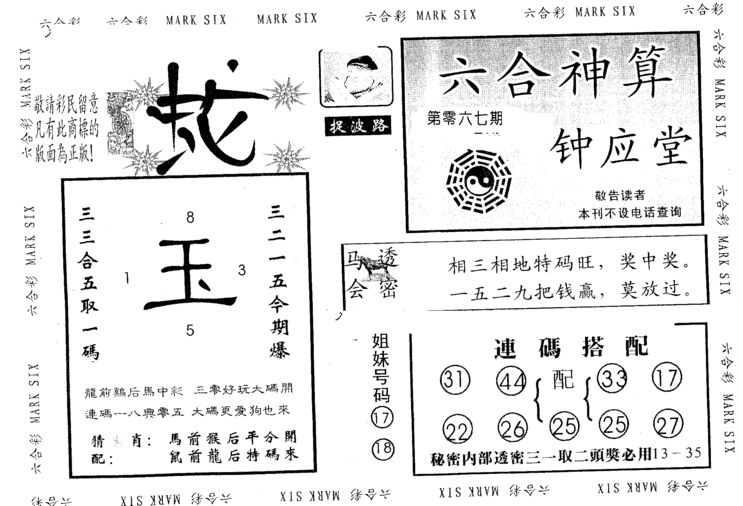 六合彩 MARK SIX MARK SIX 六合彩 MARK SIX 六合彩 MARK SIX 六合彩
六合彩 MARK SIX
敬請彩民留意
凡有此商標的
版面為正版!
捉波路
六合神算
第零六七期
钟应堂
敬告读者
本刊不设电话查询
六合彩 MARK SIX
三三合五取一碼
8
1
玉
3
5
三二一五今期爆
龍前鷄后馬中彩 三零好玩大碼開
連碼一八與零五 大碼更愛狗也來
猜 肖: 馬前猴后平分開
配: 鼠前龍后特碼來
马会
透密
相三相地特码旺,奖中奖。
一五二九把钱赢,莫放过。
姐妹号码
17
18
連碼搭配
31 44 配 33 17
22 26 25 25 27
秘密内部透密三一取二頭獎必用13-35
六合彩 MARK SIX
六合彩 MARK SIX
六合彩 MARK SIX
六合彩 MARK SIX
六合彩 MARK SIX 六合彩 MARK SIX 六合彩 MARK SIX 六合彩 MARK SIX 六合彩